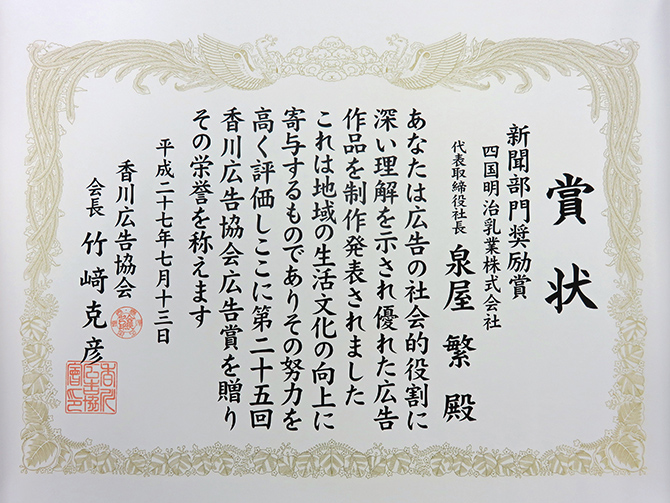 賞状
新聞部門奨励賞
四国明治乳業株式会社
代表取締役社長 泉屋 繁 殿
あなたは広告の社会的役割に
深い理解を示され優れた広告
作品を制作発表されました
これは地域の生活文化の向上に
寄与するものでありその努力を
高く評価しここに第二十五回
香川広告協会広告賞を贈り
その栄誉を称えます
平成二十七年七月十三日
香川広告協会
会長 竹﨑克彦